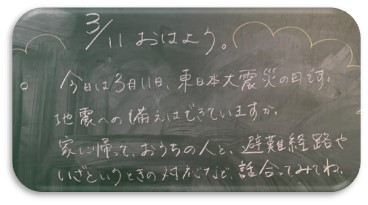 3/11 おはよう。
今日は3月11日、東日本大震災の日です。
地震への備えはできていますか。
家に帰って、おうちの人と、避難経路や
いざというときの対応など、話合ってみてね。